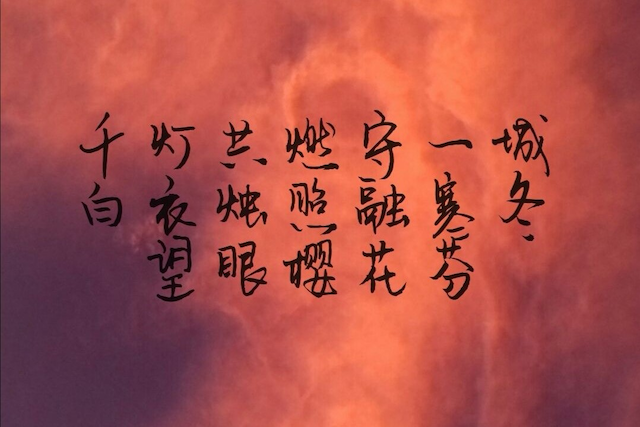 千灯共燃守一城
白衣烛照融寒冬
望眼樱花芬